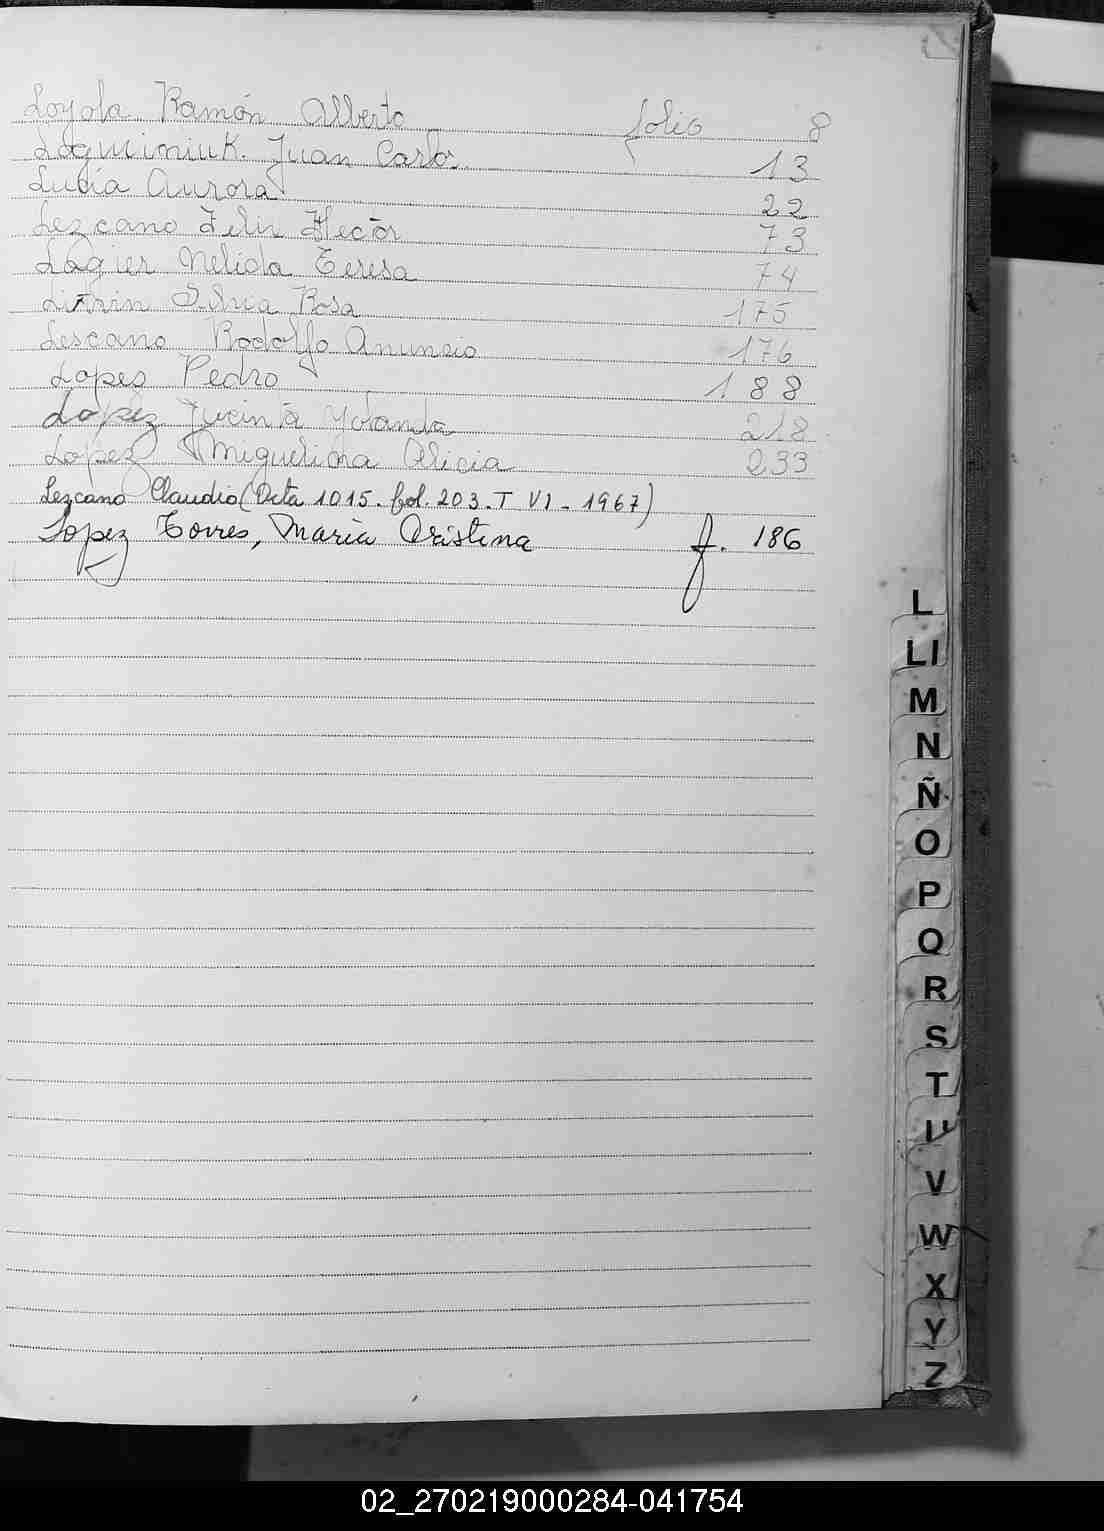 Loyola Ramón Alberto folio 8
Juan Carlos 13
Lucia Aurora 22
Lezcano Felix Hector 73
Lagier Nelida Teresa 74
Silvia Rosa 175
Lescano Rodolfo Anuncio 176
Lopes Pedro 188
Lopez Jucinta Yolanda 218
Lopez Miguelina Alicia 233
Lezcano Claudio (Acta 1015. fol. 203. T VI - 1967)
Lopez Torres, Maria Cristina f. 186
L
Ll
M
N
Ñ
O
P
Q
R
S
T
U
V
W
X
Y
Z
02_270219000284-041754